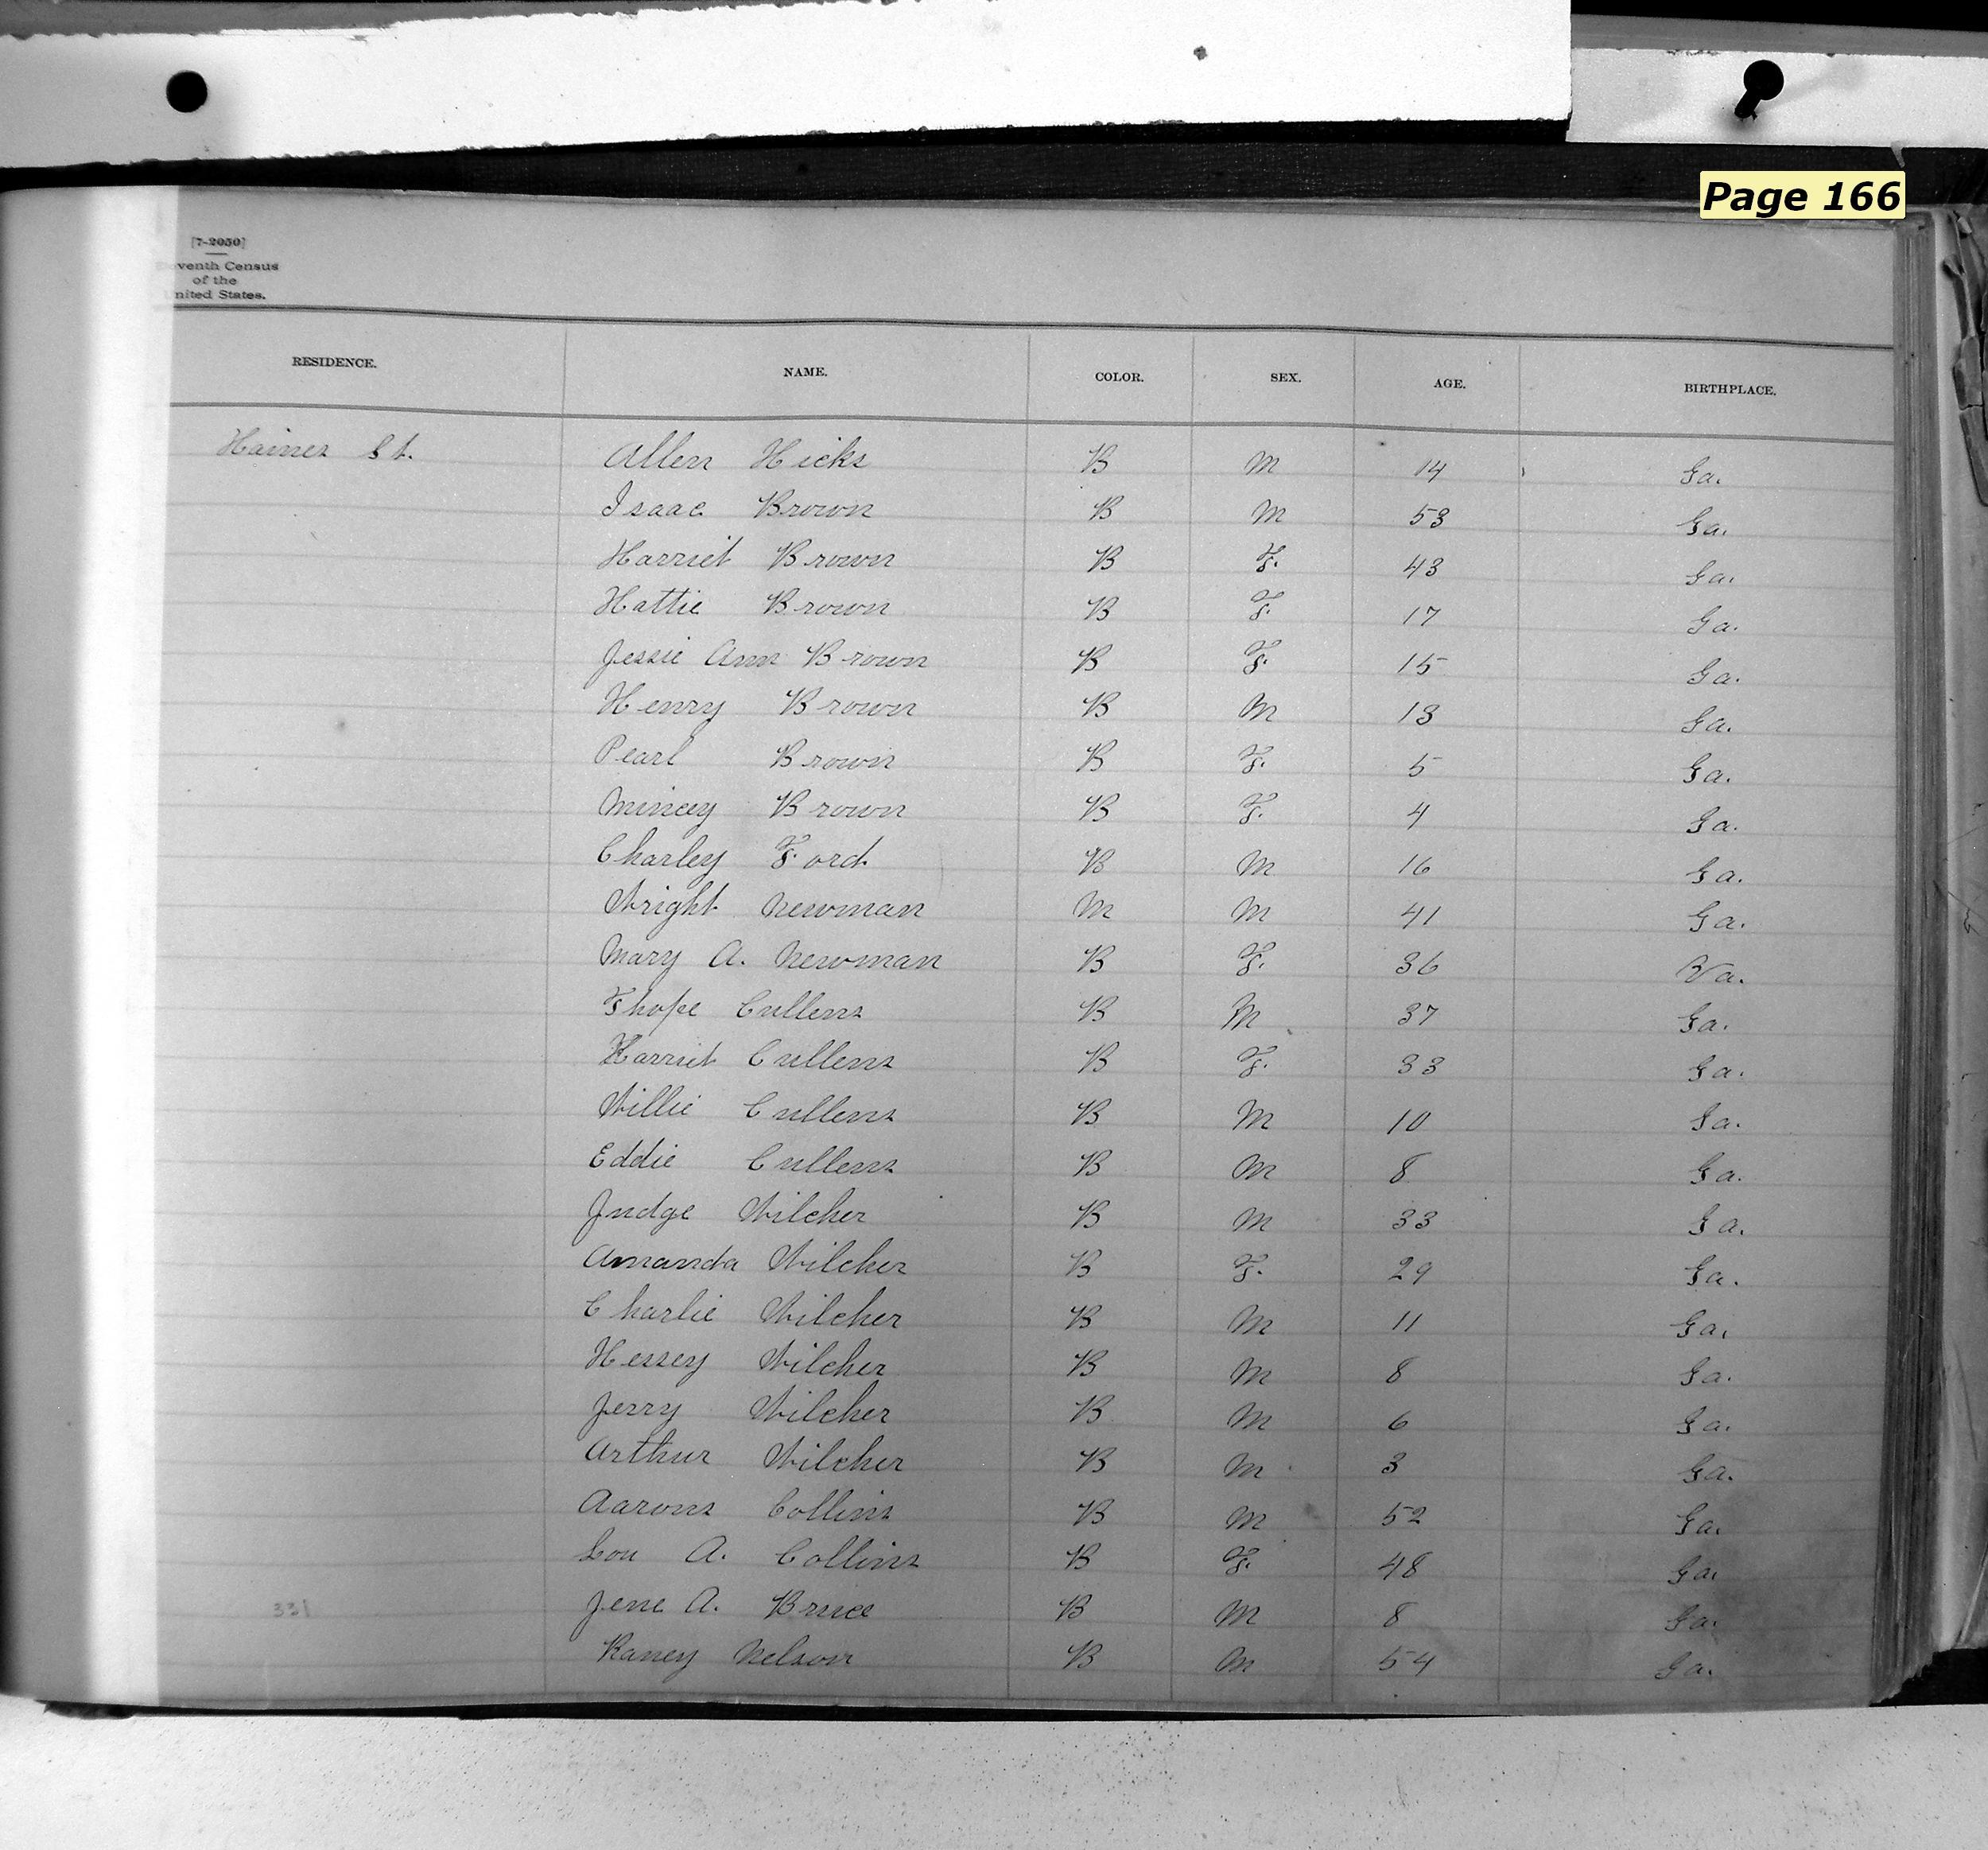 Page 166
[7-2050]
eventh Census
of the
nited States.
RESIDENCE. NAME. COLOR. SEX. AGE. BIRTHPLACE.
Haines St. Allen Hicks B M 14 Ga.
Isaac Brown B M 53 Ga.
Harriet Brown B F. 43 Ga.
Hattie Brown B F. 17 Ga.
Jessie Ann Brown B F. 15 Ga.
Henry Brown B M 13 Ga.
Pearl Brown B F. 5 Ga.
Mincey Brown B F. 4 Ga.
Charley Ford B M 16 Ga.
Wright Newman M M 41 Ga.
Mary A. Newman B F. 36 Va.
Thope Cullens B M 37 Ga.
Harriet Cullens B F. 33 Ga.
Willie Cullens B M 10 Ga.
Eddie Cullens B M 8 Ga.
Judge Wilcher B M 33 Ga.
Amanda Wilcher B F. 29 Ga.
Charlie Wilcher B M 11 Ga.
Hessey Wilcher B M 8 Ga.
Jerry Wilcher B M 6 Ga.
Arthur Wilcher B M 3 Ga.
Aarons Collins B M 52 Ga.
Lou A. Collins B F. 48 Ga.
331 Jene A. Bruce B M 8 Ga.
Raney Nelson B M 54 Ga.